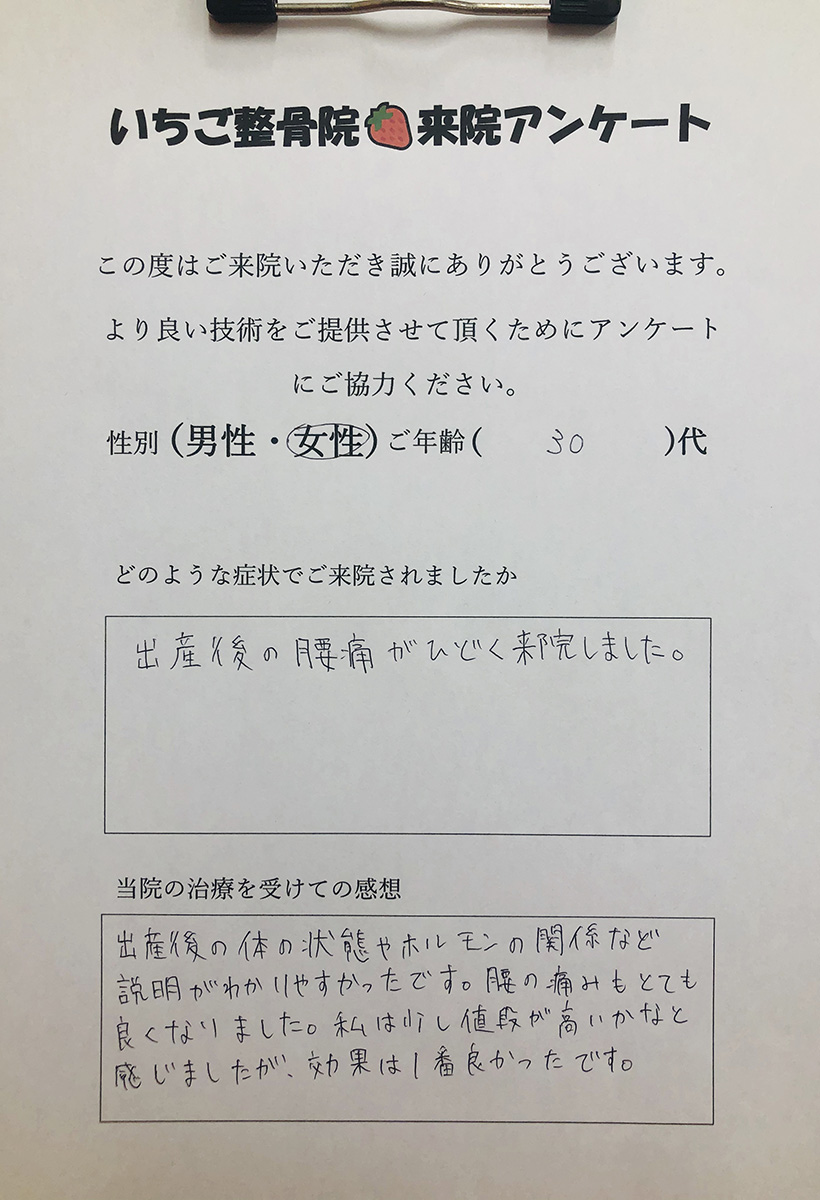 いちご整骨院来院アンケート
この度はご来院いただき誠にありがとうございます。
より良い技術をご提供させて頂くためにアンケート
にご協力ください。
性別(男性・女性)ご年齢( 30 )代
どのような症状でご来院されましたか
出産後の腰痛がひどく来院しました。
当院の治療を受けての感想
出産後の体の状態やホルモンの関係など
説明がわかりやすかったです。腰の痛みもとても
良くなりました。私は少し値段が高いかなと
感じましたが、効果は1番良かったです。